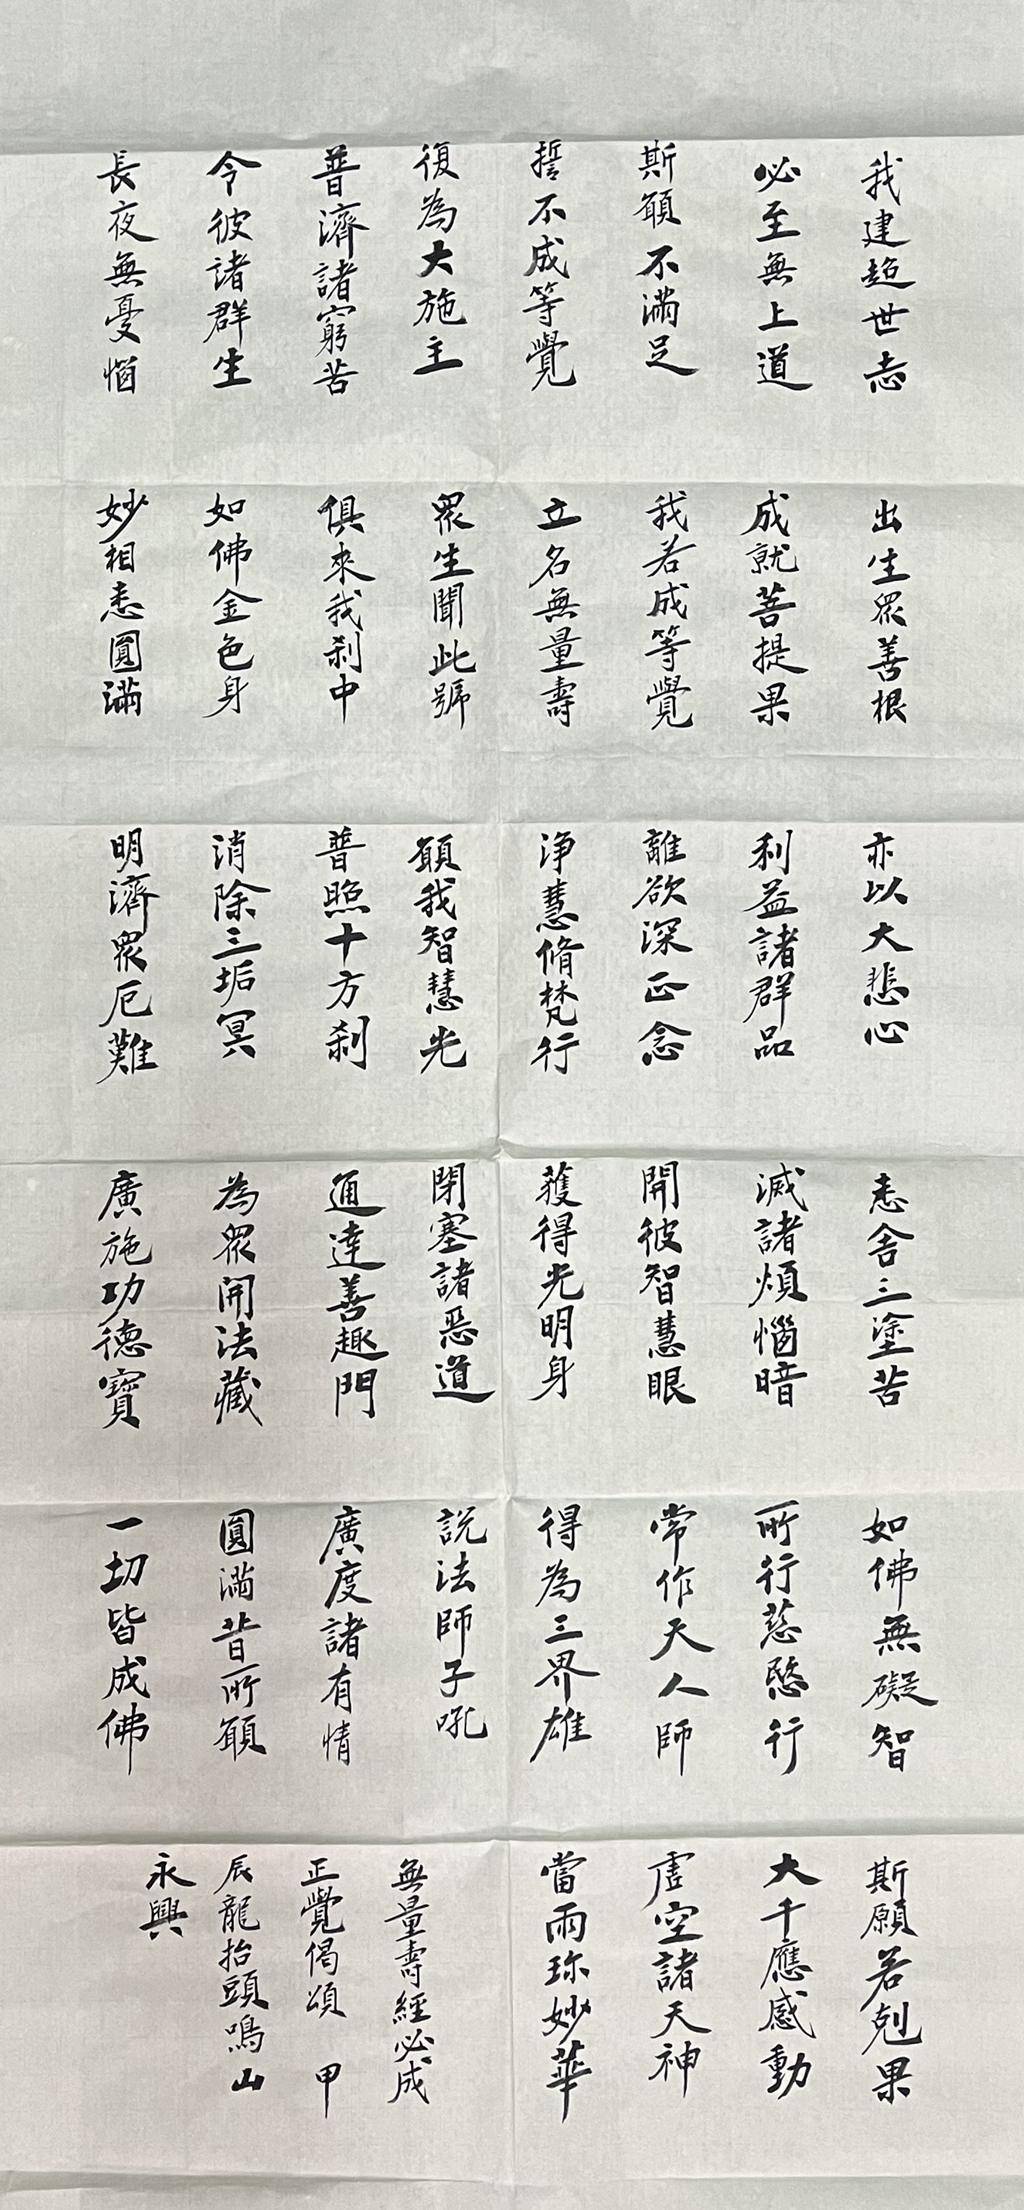 我建超世志
必至無上道
斯願不滿足
誓不成等覺
復為大施主
普濟諸窮苦
令彼諸群生
長夜無憂惱
出生眾善根
成就菩提果
我若成等覺
立名無量壽
眾生聞此號
俱來我剎中
如佛金色身
妙相悉圓滿
亦以大悲心
利益諸群品
離欲深正念
淨慧脩梵行
願我智慧光
普照十方剎
消除三垢冥
明濟眾厄難
悉舍三塗苦
滅諸煩惱暗
開彼智慧眼
獲得光明身
閉塞諸惡道
通達善趣門
為眾開法藏
廣施功德寶
如佛無礙智
所行慈愍行
常作天人師
得為三界雄
說法師子吼
廣度諸有情
圓滿昔所願
一切皆成佛
斯願若剋果
大千應感動
虛空諸天神
當雨珍妙華
無量壽經必成
正覺偈頌 甲
辰龍抬頭鳴山
永興